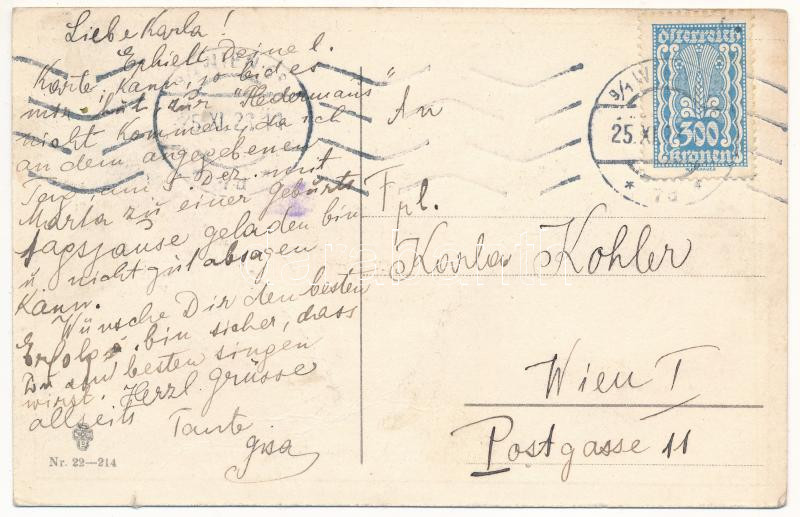 Liebe Karla!
Erhielt Deine l.
Karte. Kann, so leid es
mir tut zur "Hedermans"
nicht kommen, da ich
an dem angegebenen
Tag, am 5. Dez. mit
Marta zu einer Geburts
tagsjause geladen bin
u. nicht gut absagen
kann.
Wünsche Dir den besten
Erfolg, bin sicher, dass
Du am besten singen
wirst. Herzl. Grüsse
allseits Tante
Gisa
Nr. 22—214
25.XI.
Österreich
300
Kronen
9/1 W
25.X
* 7d *
An
Frl.
Karla Kohler
Wien I
Postgasse 11